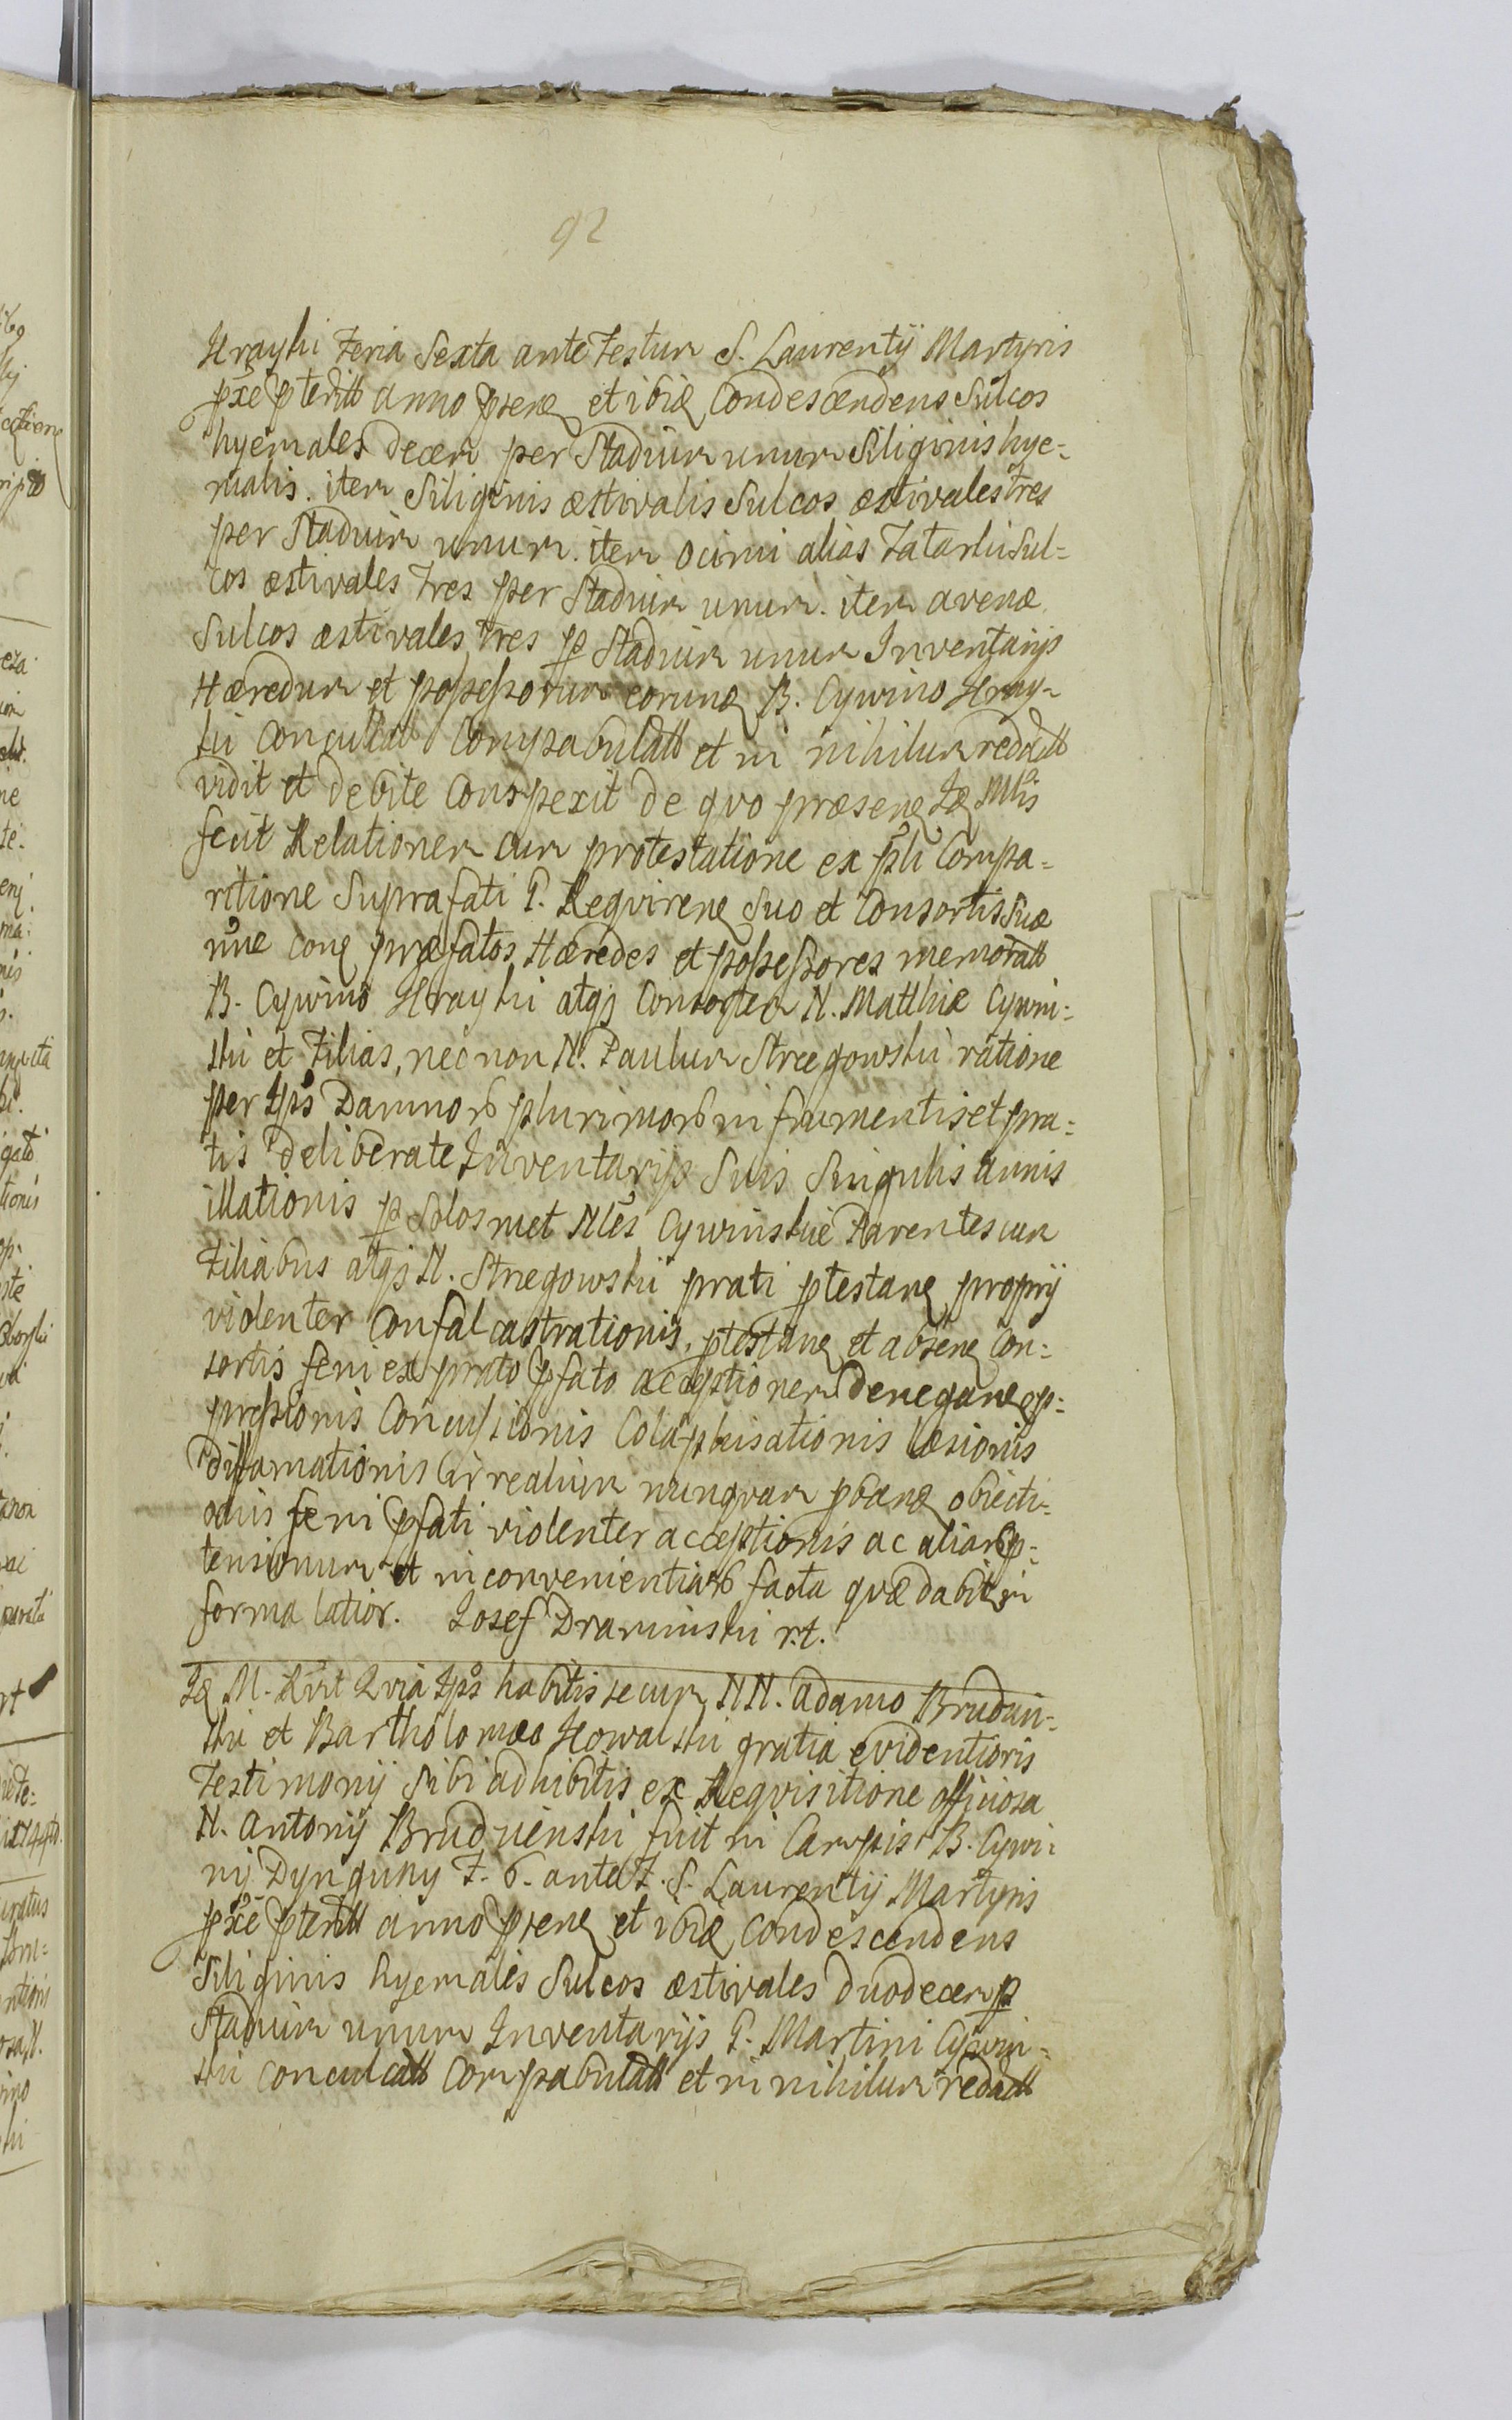 92
Krayki Feria Sexta ante Festum S. Laurentij Martyris
pxe pteritt anno psenq et ibiq Condescendens Sulcos
hyemales decem per Stadium unum Siliginis hye-
malis. item Siliginis æstivalis Sulcos æstivales tres
per Stadium unum. item ocimi alias Tatarki Sul-
cos æstivales tres per Stadium unum. item avenæ
Sulcos æstivales tres p Stadium unum Inventarijs
Hæredum et possessorum eorunq B. Cywino Kray-
ki Conculcatt Compabulatt et in nihilum redactt
vidit et debite Conspexit de quo præsenq Iq Mlis
fecit Relationem cum protestatione ex psli Compa-
ritione Suprafati G. Requirenq Suo et Consortis Suæ
nne conq præfatos Hæredes et possessores memoratt
B. Cywino Krayki atqs Consortem N. Matthiæ Cywin-
ski et Filias, nec non N. Paulum Strzegowski ratione
per Ipso Damnor plurimor in frumentis et pra-
tis deliberate Inventarijs Suis Singulis annis
illationis p Solosmet Nles Cywinskie Parentes cum
Filiabus atqs N. Strzegowski prati ptestanq proprij
violenter Confalcastrationis, ptestanq et absenq Con-
sortis feni ex prato pfato acceptionem deneganq op-
pressionis Concussionis Colaphisationis læsionis
diffamationis Crirealium nunquam pbanq obiecti-
onis feni pfati violenter acceptionis ac aliar p-
tensionum et inconvenientiar facta quæ dabit in
forma latior. Josef Draminski r.t.
Iq M. Rvit Qvia Ipso habitis secum NN. Adamo Brudzin-
ski et Bartholomæo Kowalski gratia evidentioris
Testimonij Sibi adhibitis ex Requisitione officiosa
N. Antonij Brudzienski fuit in Campis B. Cywi-
nij Dynguny F. 6. ante F. S. Laurentij Martyris
pxe pteritt anno psenq et ibiq Condescendens
Siliginis hyemalis Sulcos æstivales duodecem p
Stadium unum Inventarijs G. Martini Cywin-
ski conculcatt Compabulatt et in nihilum redactt